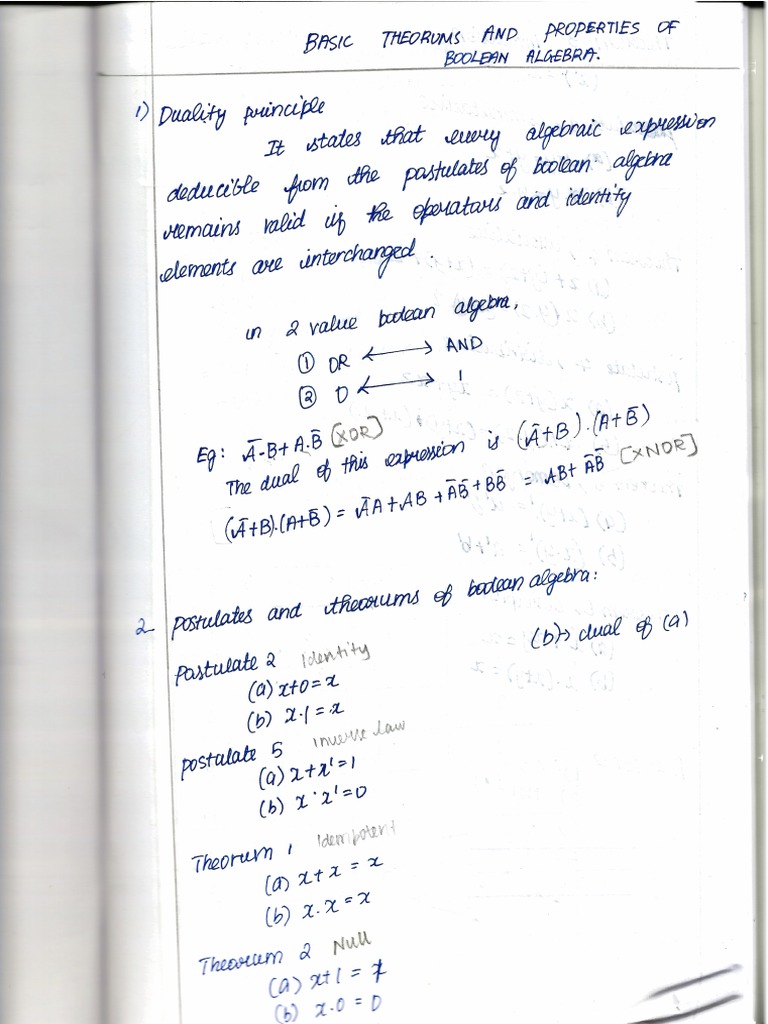 BASIC THEORUMS AND PROPERTIES OF
BOOLEAN ALGEBRA.
1) Duality principle
It states that every algebraic expression
deducible from the postulates of boolean algebra
remains valid if the operators and identity
elements are interchanged.
in 2 value boolean algebra,
① OR ⟷ AND
② 0 ⟷ 1
Eg: A̅·B + A·B̅ [XOR]
The dual of this expression is (A̅+B)·(A+B̅)
(A̅+B)·(A+B̅) = A̅A + AB + A̅B̅ + BB̅ = AB + A̅B̅ [XNOR]
2 Postulates and theorums of boolean algebra:
(b)→ dual of (a)
Postulate 2 Identity
(a) x+0=x
(b) x·1=x
postulate 5 inverse law
(a) x+x'=1
(b) x·x'=0
Theorum 1 Idempotent
(a) x+x = x
(b) x·x = x
Theorum 2 Null
(a) x+1 = 1
(b) x·0 = 0